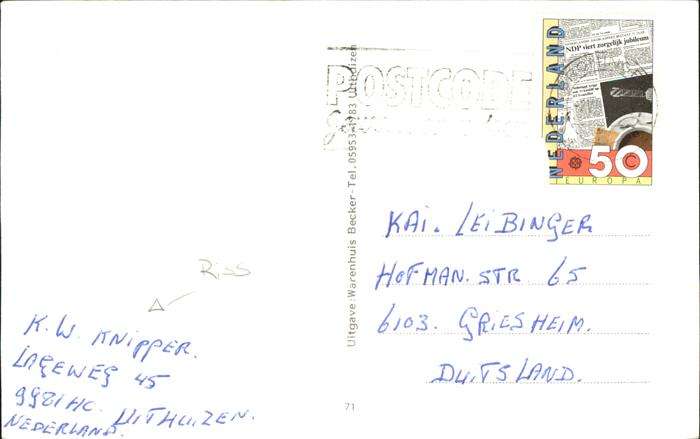 NEDERLAND
NDP viert zorgelijk jubileum
50 C
EUROPA
POSTCODE
Uitgave: Warenhuis Becker - Tel. 05953-1983 Uithuizen
KAI. LEIBINGER
HOFMAN. STR 65
6103. GRIESHEIM.
DUITSLAND.
RISS
K. W. KNIPPER.
LAGEWEG 45
9981 HC. UITHUIZEN.
NEDERLAND.
71